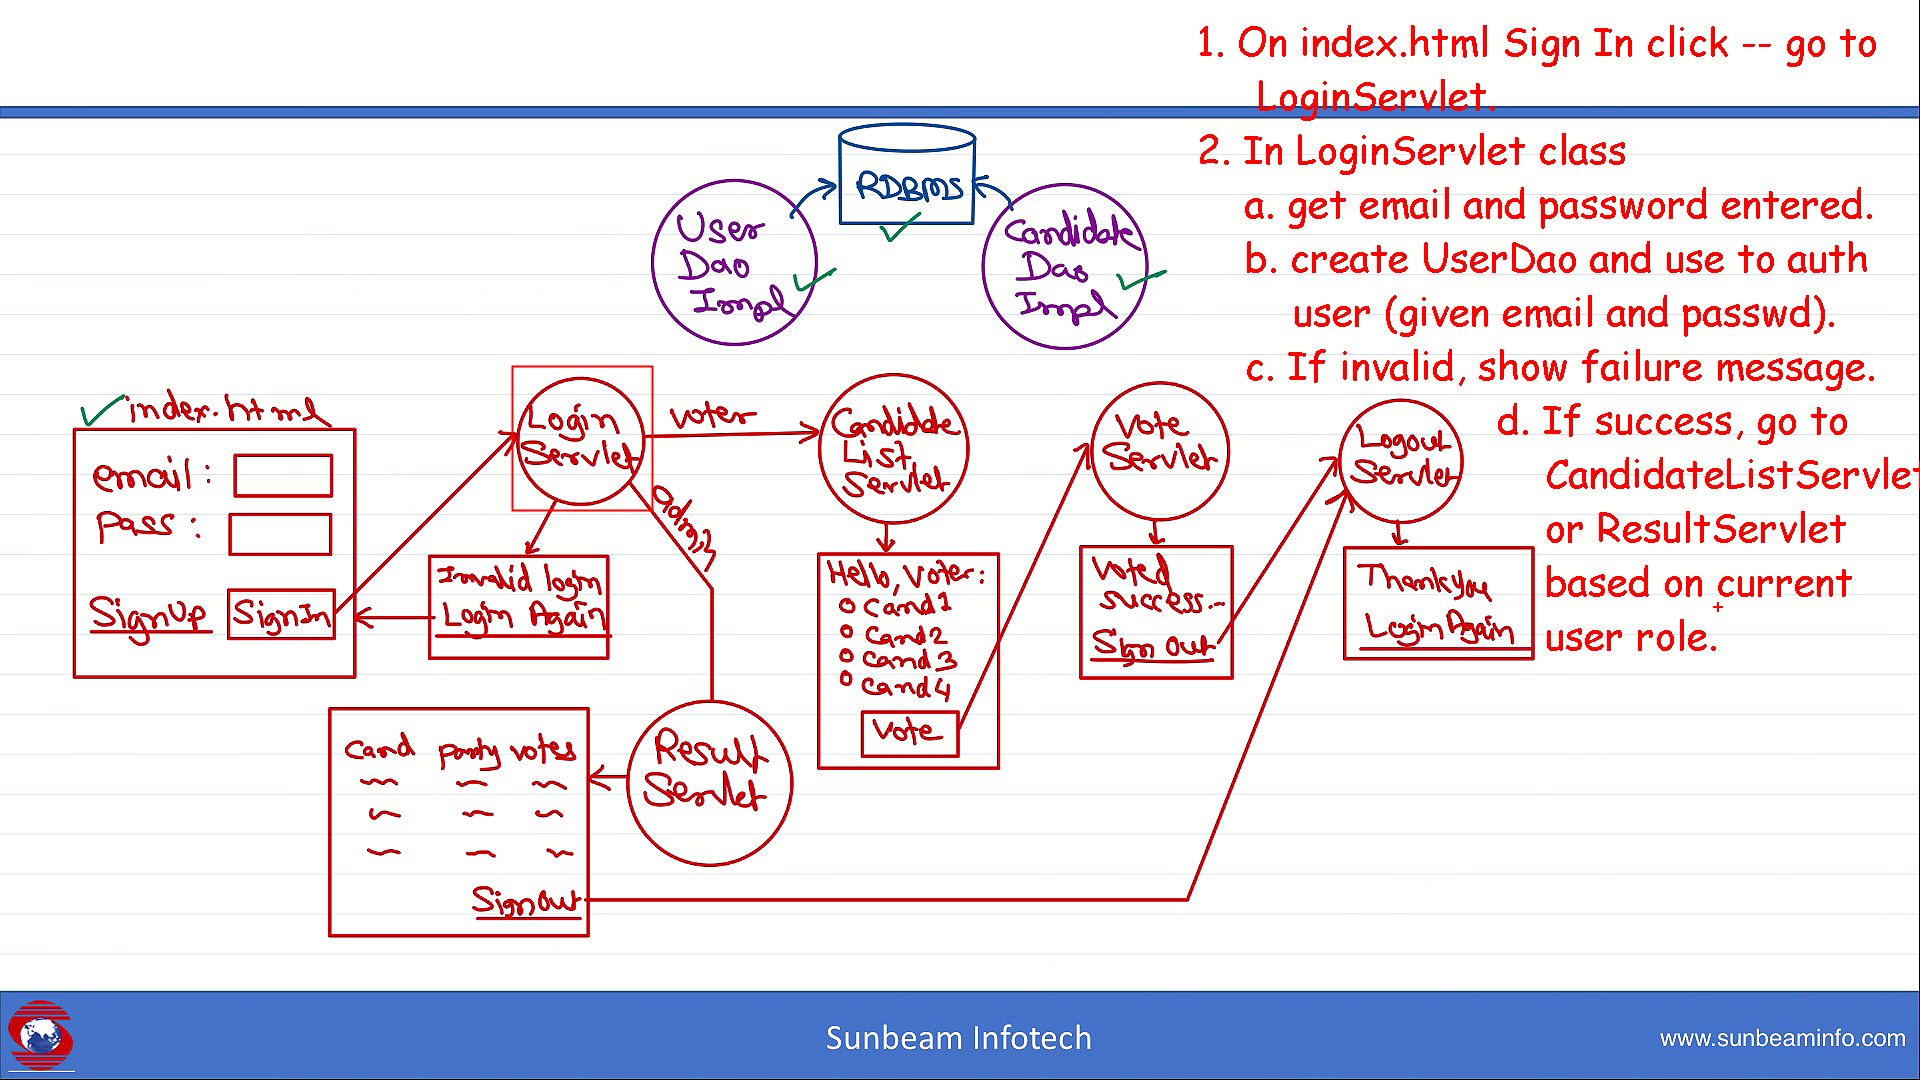 1. On index.html Sign In click -- go to
LoginServlet.
2. In LoginServlet class
a. get email and password entered.
b. create UserDao and use to auth
user (given email and passwd).
c. If invalid, show failure message.
d. If success, go to
CandidateListServlet
or ResultServlet
based on current
user role.
RDBMS
User
Dao
Impl
Candidate
Dao
Impl
index.html
email:
Pass:
SignUp
SignIn
Login
Servlet
voter
admin
Invalid login
Login Again
Candidate
List
Servlet
Hello, Voter:
Cand1
Cand2
Cand3
Cand4
Vote
Vote
Servlet
Voted
success...
Sign Out
Logout
Servlet
Thankyou
Login Again
Result
Servlet
Cand party votes
SignOut
Sunbeam Infotech
www.sunbeaminfo.com